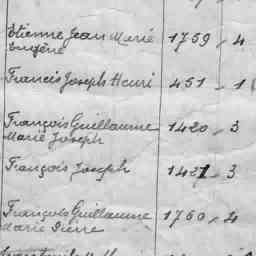 Etienne Jean Marie 1759 - 4
Eugène
Francis Joseph Henri 451 - 1
François Guillaume 1420 - 3
Marie Joseph
François Joseph 1421 - 3
François Guillaume 1760 - 4
Marie Pierre